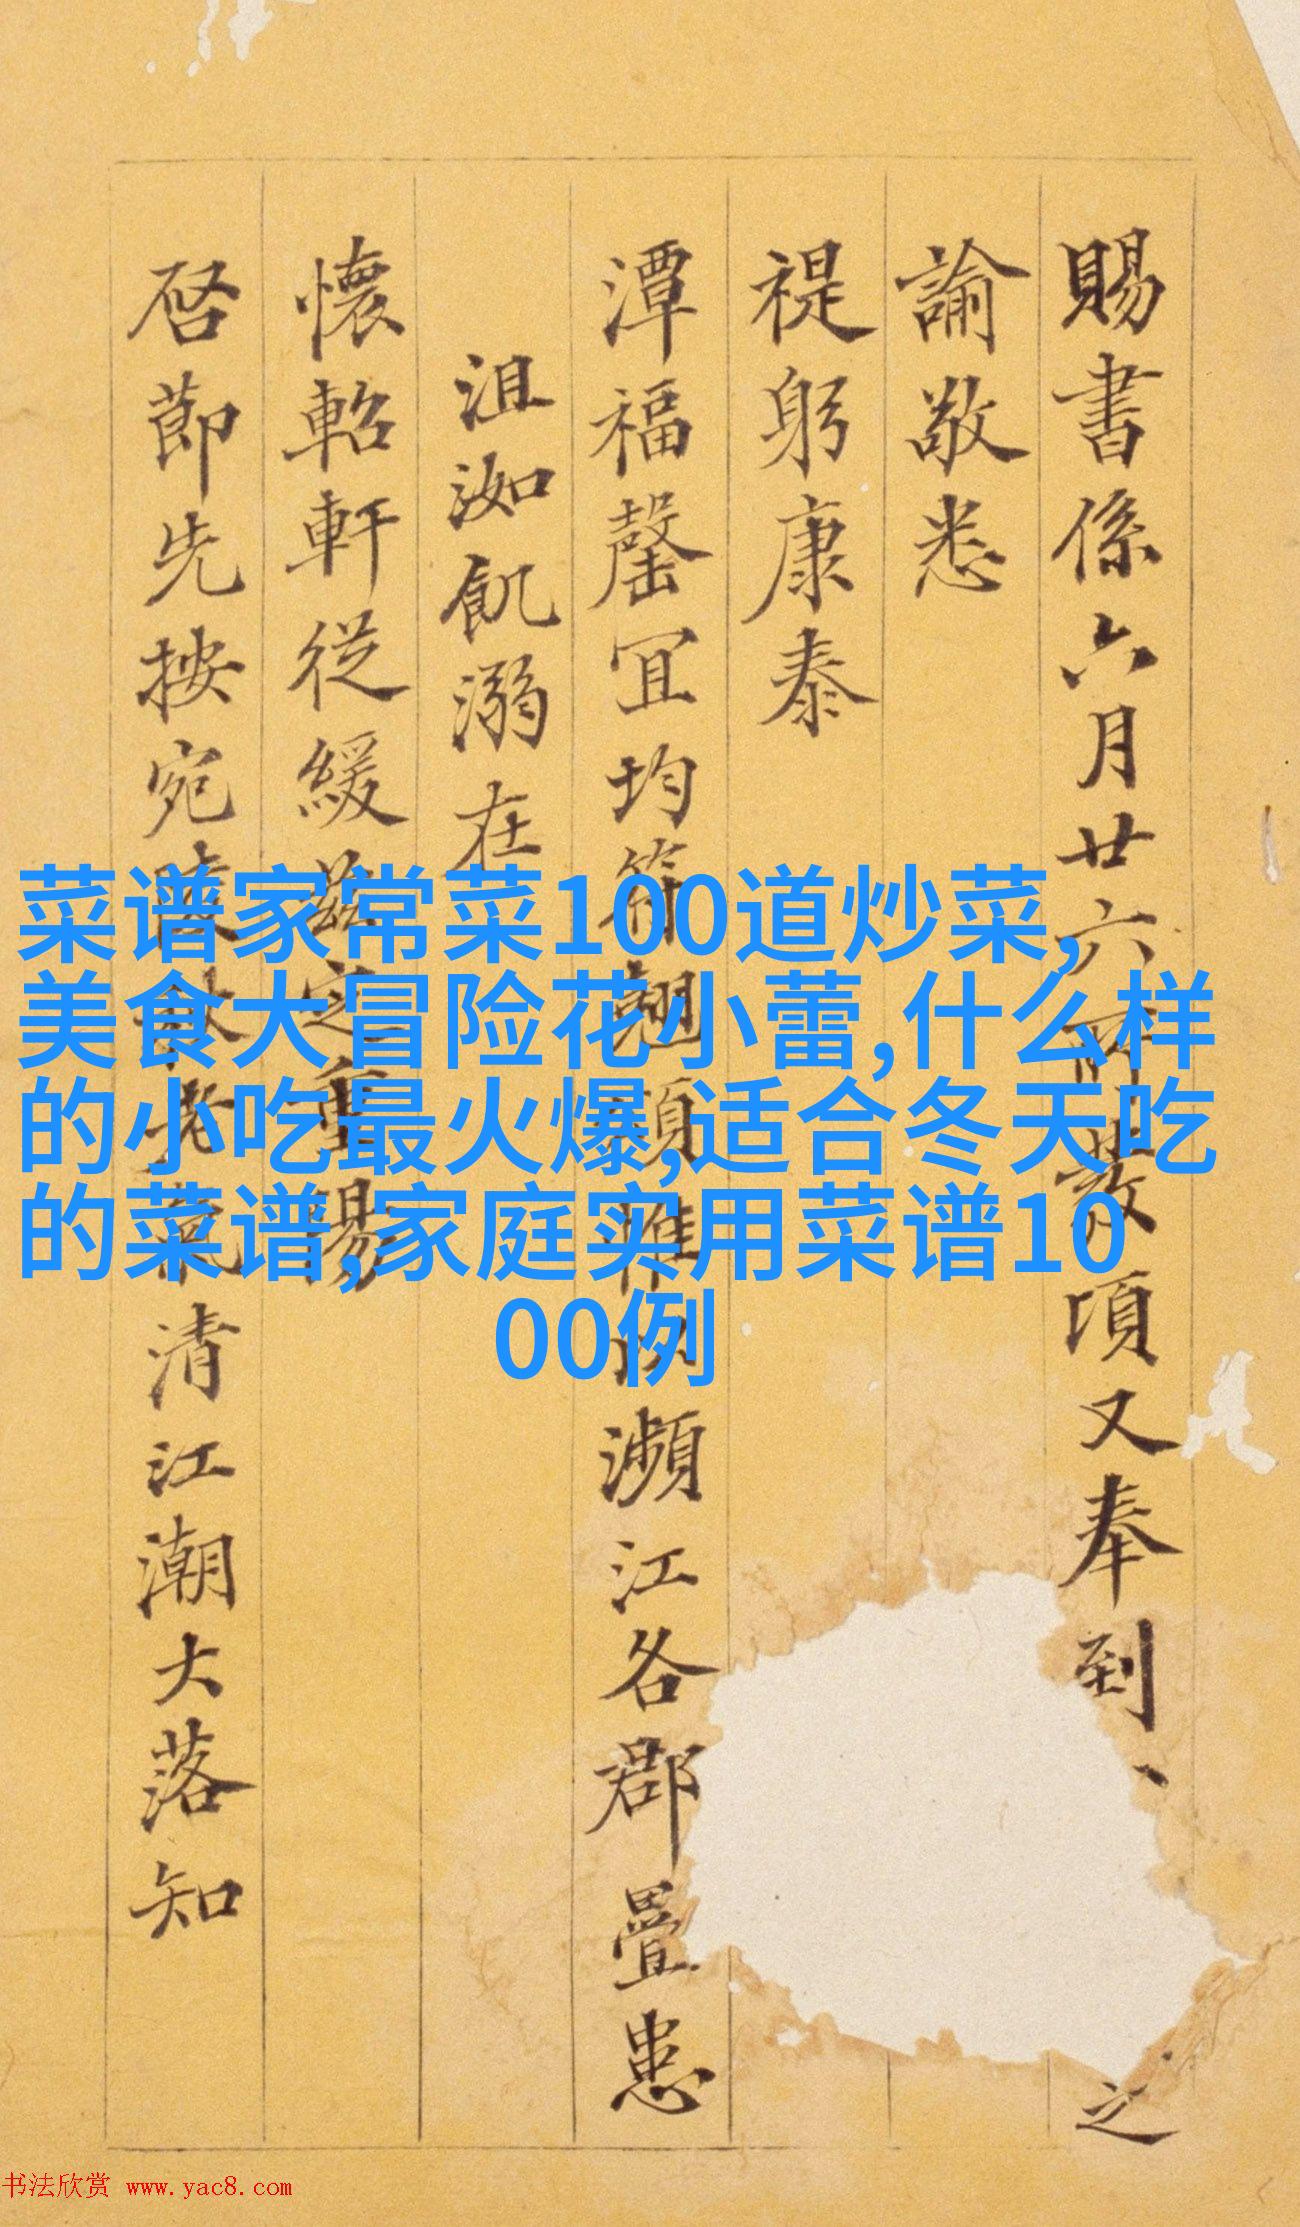 賜書係六月廿六所發項又奉到、之
諭敬悉
禔躬康泰
潭福罄宜均符翹頌惟以瀕江各郡疊患
沮洳飢溺在
懷軺軒從緩茲定重陽
啓節先按宛陵秋老氣清江潮大落知
菜谱家常菜100道炒菜,
美食大冒险花小蕾,什么样
的小吃最火爆,适合冬天吃
的菜谱,家庭实用菜谱10
00例
书法欣赏 www.yac8.com